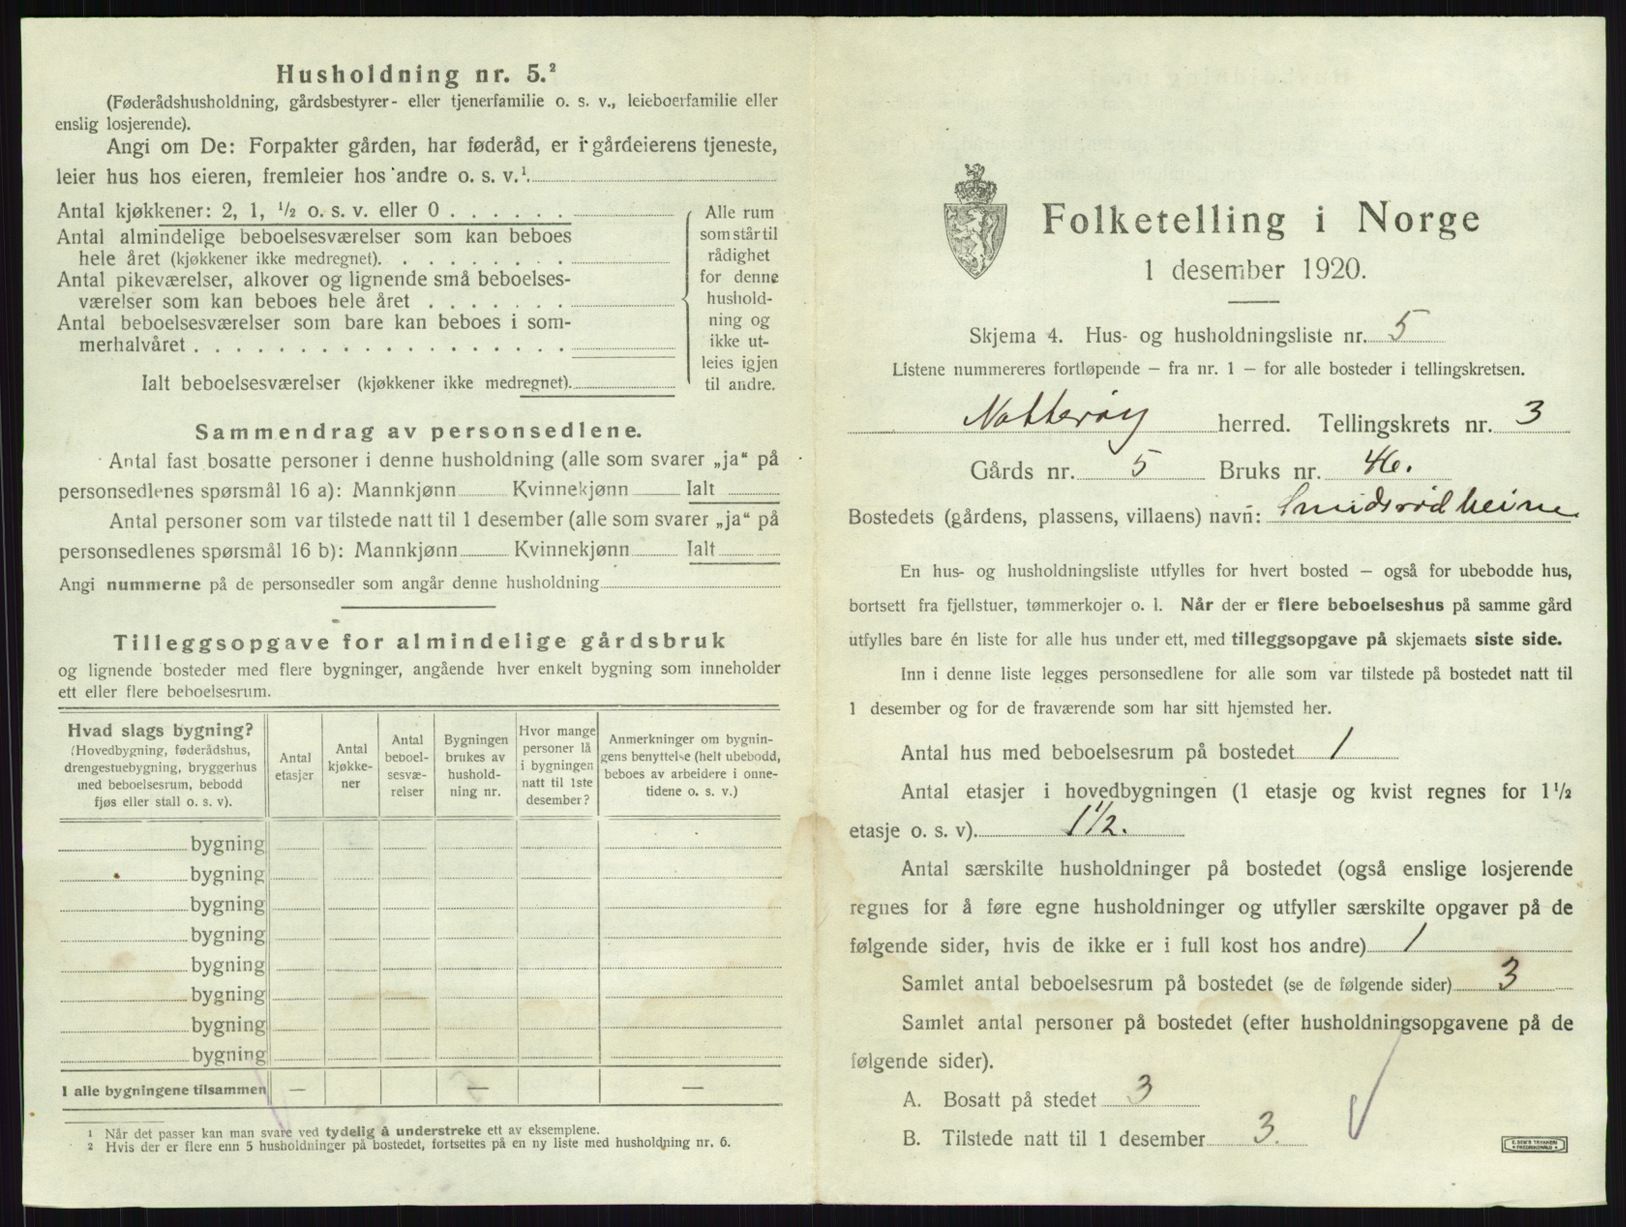 Husholdning nr. 5.²
(Føderådshusholdning, gårdsbestyrer- eller tjenerfamilie o. s. v., leieboerfamilie eller
enslig losjerende).
Angi om De: Forpakter gården, har føderåd, er i gårdeierens tjeneste,
leier hus hos eieren, fremleier hos andre o. s. v.¹
Antal kjøkkener: 2, 1, ½ o. s. v. eller 0
Antal almindelige beboelsesværelser som kan beboes
hele året (kjøkkener ikke medregnet).
Antal pikeværelser, alkover og lignende små beboelses-
værelser som kan beboes hele året
Antal beboelsesværelser som bare kan beboes i som-
merhalvåret
Ialt beboelsesværelser (kjøkkener ikke medregnet)
Alle rum
som står til
rådighet
for denne
hushold-
ning og
ikke ut-
leies igjen
til andre.
Sammendrag av personsedlene.
Antal fast bosatte personer i denne husholdning (alle som svarer „ja“ på
personsedlenes spørsmål 16 a): Mannkjønn Kvinnekjønn Ialt
Antal personer som var tilstede natt til 1 desember (alle som svarer „ja“ på
personsedlenes spørsmål 16 b): Mannkjønn Kvinnekjønn Ialt
Angi nummerne på de personsedler som angår denne husholdning
Tilleggsopgave for almindelige gårdsbruk
og lignende bosteder med flere bygninger, angående hver enkelt bygning som inneholder
ett eller flere beboelsesrum.
Hvad slags bygning?
(Hovedbygning, føderådshus,
drengestuebygning, bryggerhus
med beboelsesrum, bebodd
fjøs eller stall o. s. v).
Antal
etasjer
Antal
kjøkke-
ner
Antal
beboel-
sesvæ-
relser
Bygningen
brukes av
hushold-
ning nr.
Hvor mange
personer lå
i bygningen
natt til 1ste
desember?
Anmerkninger om bygnin-
gens benyttelse (helt ubebodd,
beboes av arbeidere i onne-
tidene o. s. v.)
bygning
bygning
bygning
bygning
bygning
bygning
bygning
bygning
I alle bygningene tilsammen — — —
¹ Når det passer kan man svare ved tydelig å understreke ett av eksemplene.
² Hvis der er flere enn 5 husholdninger på bostedet, fortsettes på en ny liste med husholdning nr. 6.
Folketelling i Norge
1 desember 1920.
Skjema 4. Hus- og husholdningsliste nr. 5
Listene nummereres fortløpende — fra nr. 1 — for alle bosteder i tellingskretsen.
Nøtterøy herred. Tellingskrets nr. 3
Gårds nr. 5 Bruks nr. 46.
Bostedets (gårdens, plassens, villaens) navn: Smidsrødheim
En hus- og husholdningsliste utfylles for hvert bosted — også for ubebodde hus,
bortsett fra fjellstuer, tømmerkojer o. l. Når der er flere beboelseshus på samme gård
utfylles bare én liste for alle hus under ett, med tilleggsopgave på skjemaets siste side.
Inn i denne liste legges personsedlene for alle som var tilstede på bostedet natt til
1 desember og for de fraværende som har sitt hjemsted her.
Antal hus med beboelsesrum på bostedet 1
Antal etasjer i hovedbygningen (1 etasje og kvist regnes for 1½
etasje o. s. v). 1½.
Antal særskilte husholdninger på bostedet (også enslige losjerende
regnes for å føre egne husholdninger og utfyller særskilte opgaver på de
følgende sider, hvis de ikke er i full kost hos andre) 1
Samlet antal beboelsesrum på bostedet (se de følgende sider) 3
Samlet antal personer på bostedet (efter husholdningsopgavene på de
følgende sider).
A. Bosatt på stedet 3
B. Tilstede natt til 1 desember 3.